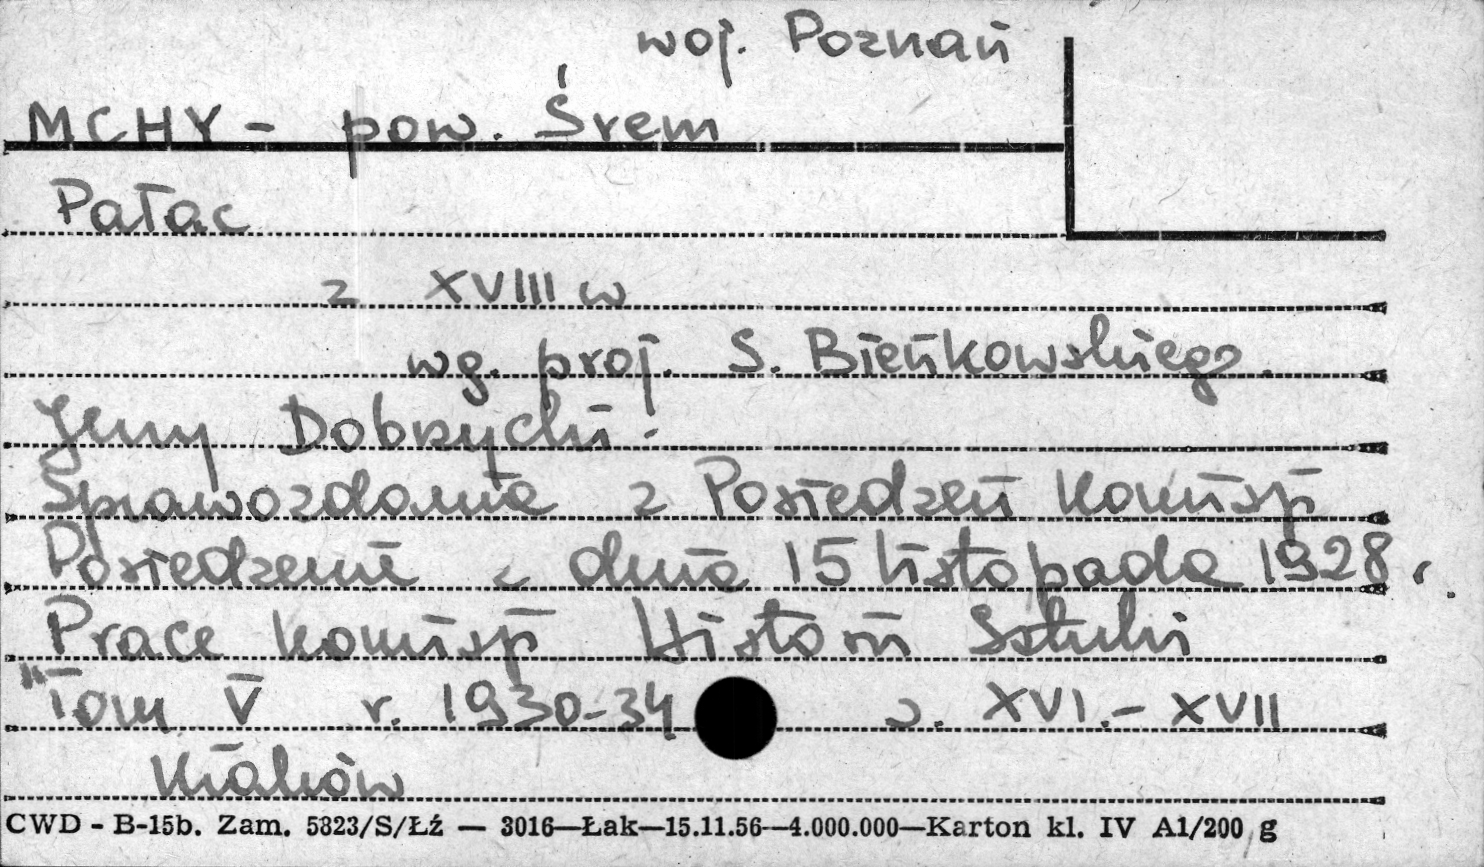 woj. Poznań
MCHY - pow. Śrem
Pałac
z XVIII w
wg. proj. S. Bieńkowskiego.
Jerzy Dobrzycki.
Sprawozdanie z Posiedzeń Komisji
Posiedzenie z dnia 15 listopada 1928 r.
Prace Komisji Historii Sztuki
"Tom V r. 1930-34 s. XVI.- XVII
Kraków
CWD - B-15b. Zam. 5323/S/Łź — 3016—Łak—15.11.56—4.000.000—Karton kl. IV A1/200 g